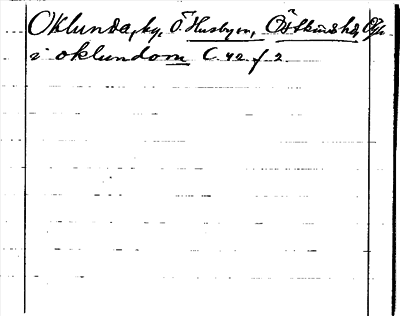 Oklunda, ky, Ö Husbyn, Östkinds hd, Ög
i oklundom C. 42 f 2